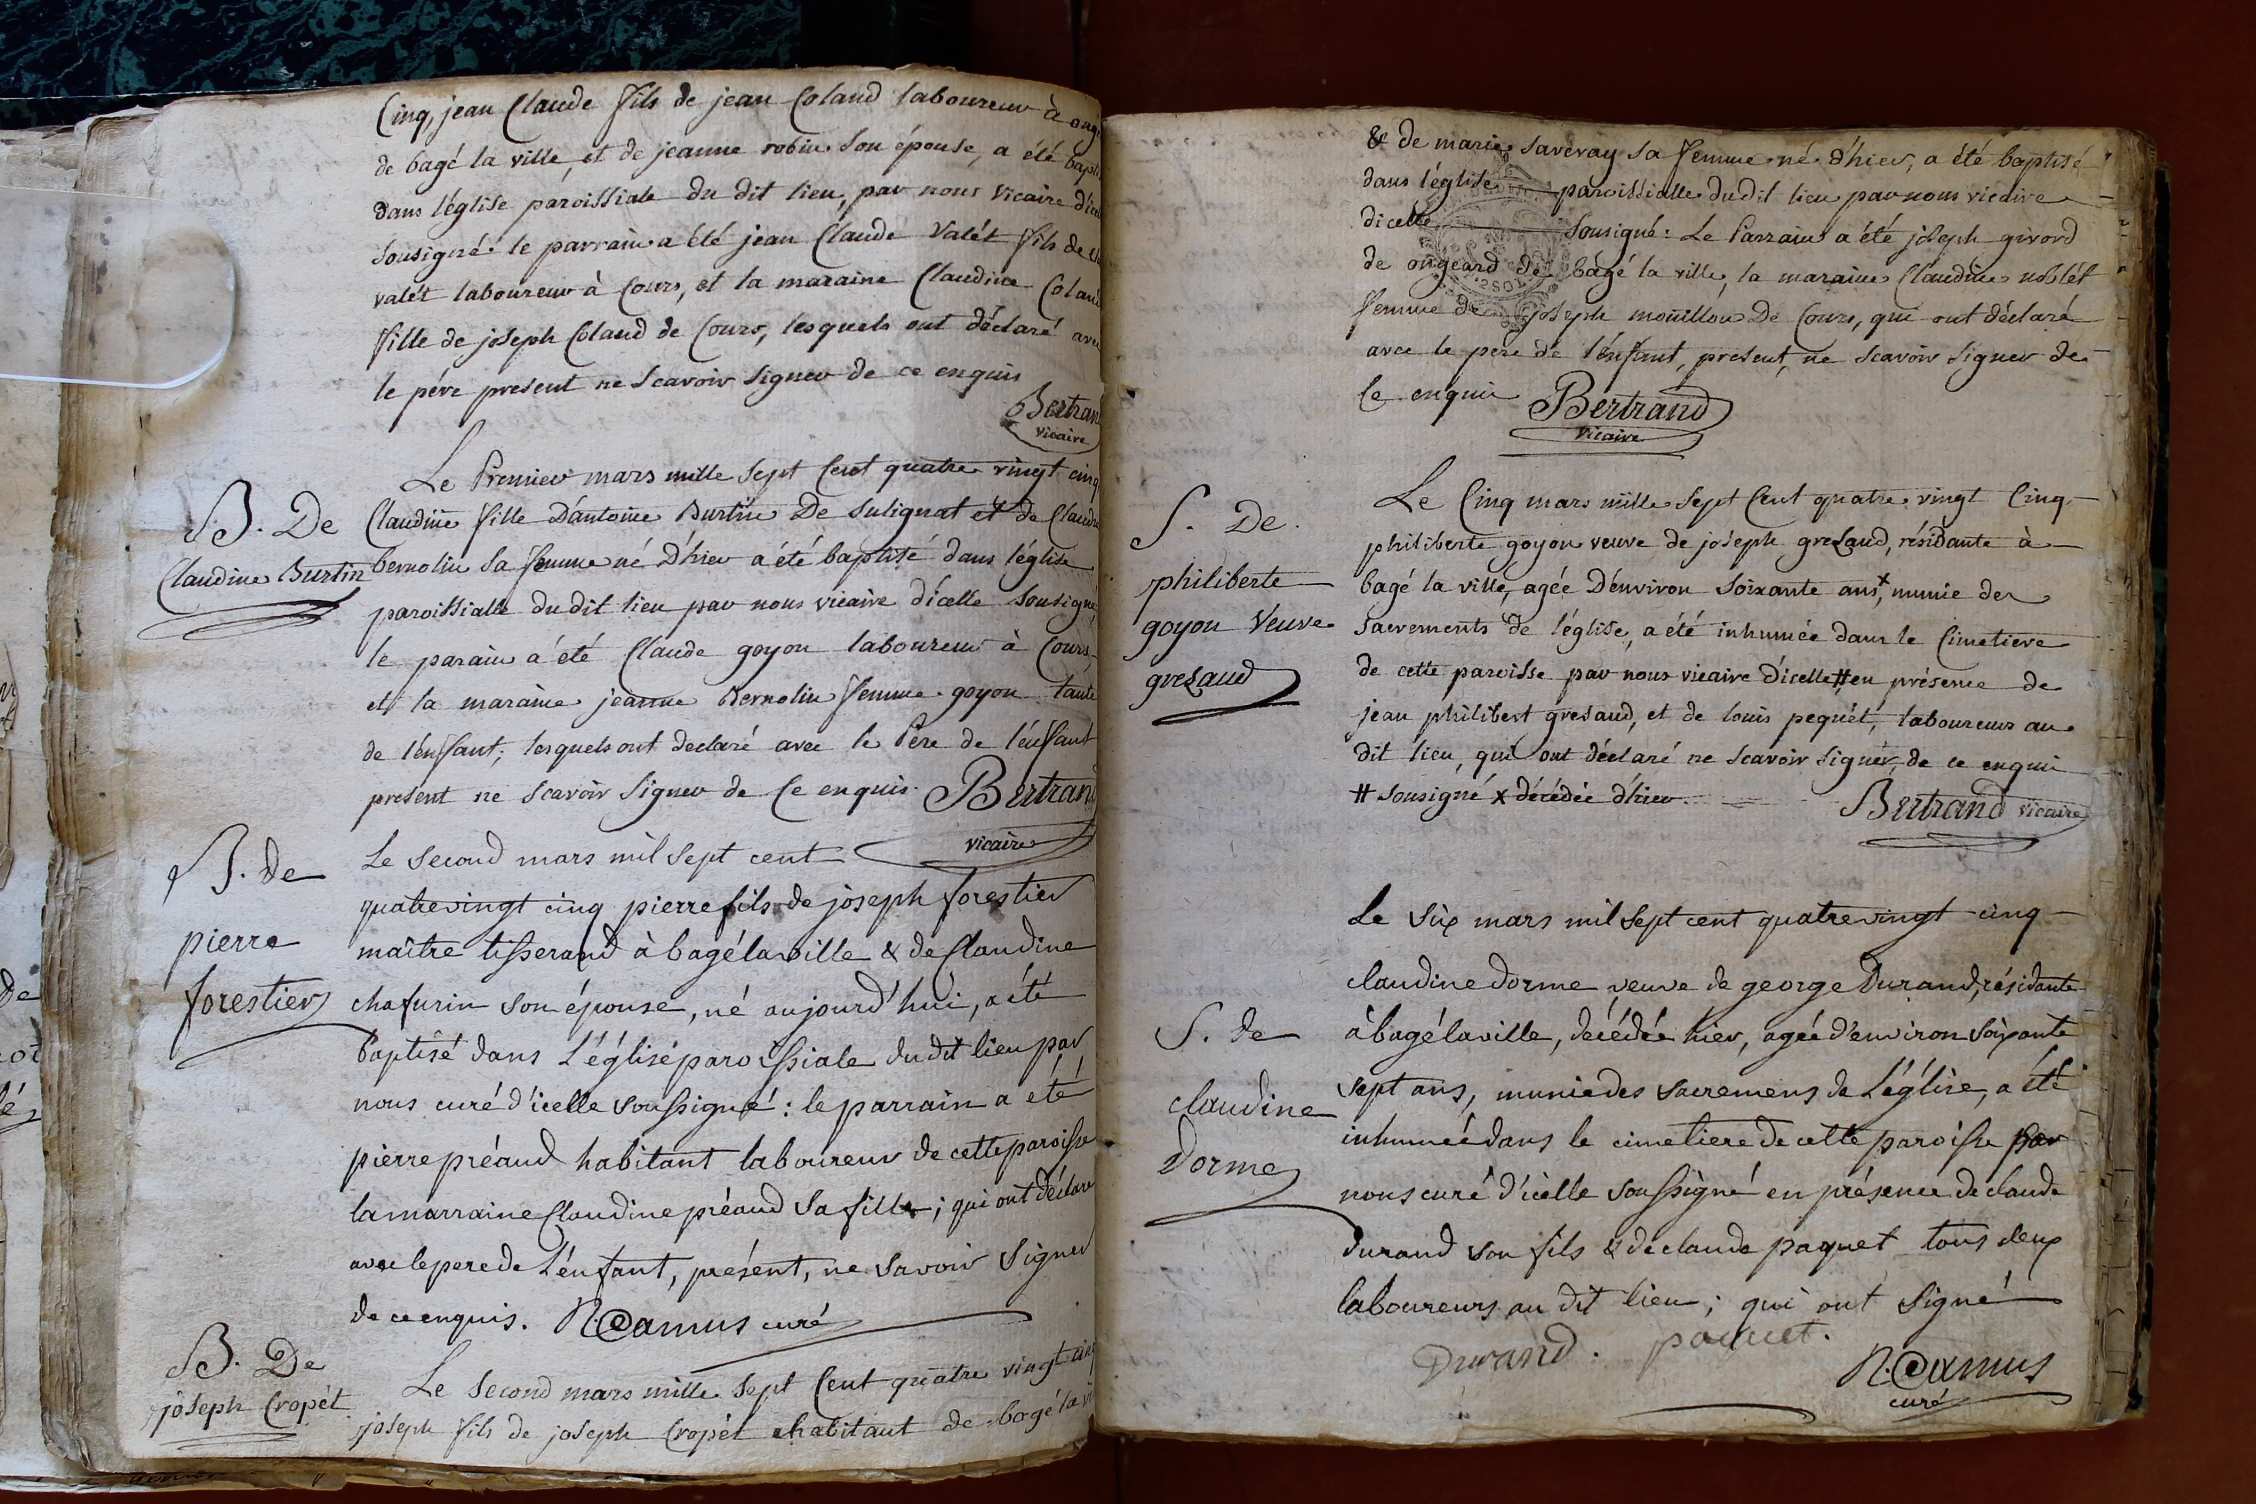 Cinq, jean Claude fils de jean Coland laboureur à
de bagé la ville, et de jeanne robin son épouse, a été bapti
dans l'église paroissiale du dit lieu, par nous vicaire d'icel
sousigné: le parrain a été jean Claude Valét fils de
valét laboureur à Cours, et la maraine Claudine Coland
fille de joseph Coland de Cours, lesquels ont déclaré avec
le pére present ne scavoir signer de ce enquis
Bertrand
vicaire
B. De
Claudine Burtin
Le Premier mars mille sept Cent quatre vingt cinq
Claudine fille D'antoine Burtin De sulignat et de Claudine
bernolin sa femme né D'hier a été baptisé dans l'église
paroissialle du dit lieu par nous vicaire d'icelle sousigné,
le parain a été Claude goyon laboureur à Cours,
et la maraine jeanne Bernolin femme goyon tante
de l'énfant, lesquels ont declaré avec le Pére de l'énfant
present ne scavoir signer de Ce enquis. Bertrand
vicaire
B. de
pierre
forestier
Le second mars mil sept cent
quatrevingt cinq pierre fils de joseph forestier
maître tisserand à bagé la ville & de Claudine
chafurin son épouse, né aujourd'hui, a été
baptisé dans L'église paroissiale du dit lieu par
nous curé d'icelle soussigné: le parrain a été
pierre préaud habitant laboureur de cette paroisse
la marraine Claudine préaud sa fille; qui ont déclaré
avec le pere de L'énfant, présent, ne savoir signer
de ce enquis. N. Camus curé
B. De
joseph Cropét
Le second mars mille sept Cent quatre vingt cinq
joseph fils de joseph Cropét habitant de bagé la vi
& de marie saveray sa femme né d'hier, a été baptisé
dans l'église paroissialle du dit lieu par nous vicaire
dicelle sousigné: Le Parrain a été joseph girord
de ongeard de bagé la ville, la maraine Claudine noblét
femme de joseph moüillou De Cours, qui ont déclaré
avec le pere de l'énfant, present, ne scavoir signer de
Ce enquis Bertrand
vicaire
S. De
philiberte
goyon Veuve
gresaud
Le Cinq mars mille sept Cent quatre vingt Cinq
philiberte goyon veuve de joseph gresaud, résidante à
bagé la ville, agée D'environ soixante ans, x munie des
sacrements de l'église, a été inhumée dans le Cimetiere
de cette paroisse par nous vicaire d'icelle # en présence de
jean philibert gresaud, et de louis pequét, laboureurs au
dit lieu, qui ont déclaré ne scavoir signér, de ce enquis
# sousigné x décédée d'hier.
Bertrand vicaire
S. de
claudine
Dorme
Le six mars mil sept cent quatrevingt cinq
claudine dorme veuve de george Durand, résidante
à bagé la ville, decédée hier, agée d'environ soixante
sept ans, munie des sacremens de L'église, a été
inhumée dans le cimetiere de cette paroisse par
nous curé d'icelle soussigné en présence de claude
durand son fils & de claude paquet tous deux
laboureurs au dit lieu; qui ont signé
Durand. paquet.
N. Camus
curé